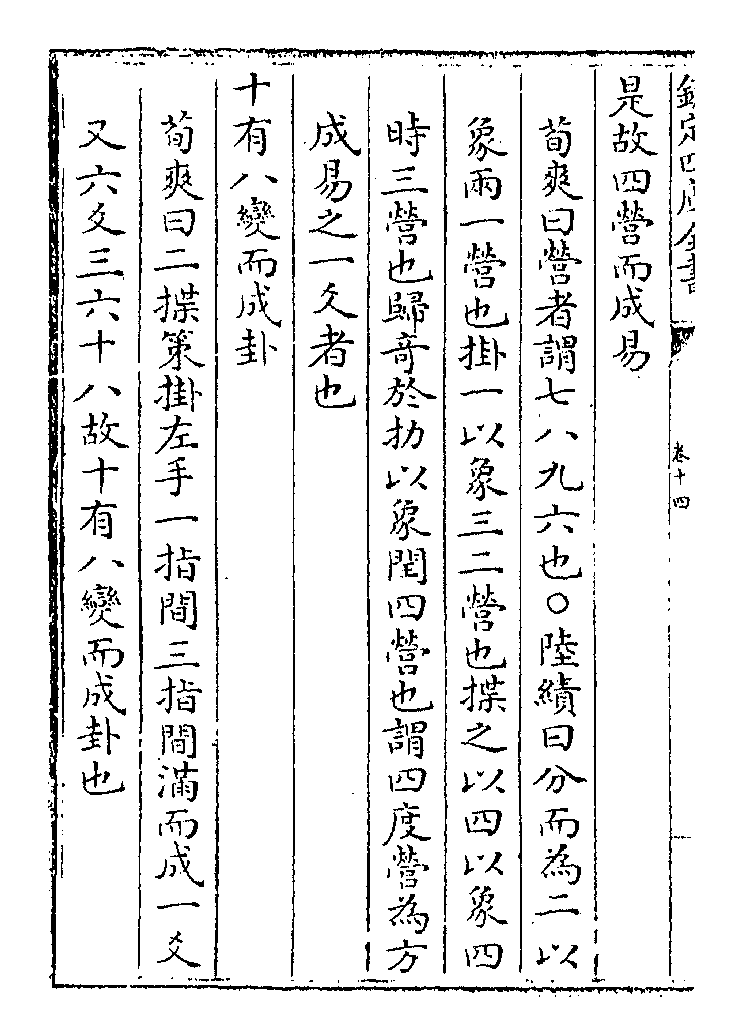 欽定四庫全書
卷十四
是故四營而成易
荀爽曰營者謂七八九六也○陸績曰分而為二以
象兩一營也掛一以象三二營也揲之以四以象四
時三營也歸奇於扐以象閏四營也謂四度營為方
成易之一爻者也
十有八變而成卦
荀爽曰二揲策掛左手一指間三指間滿而成一爻
又六爻三六十八故十有八變而成卦也